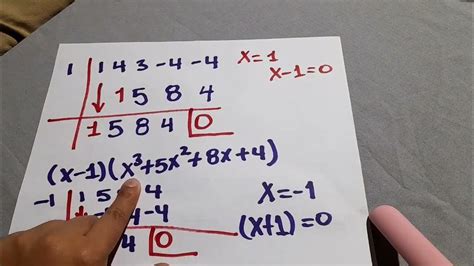 1 | 1 4 3 -4 -4 x=1
x-1=0
↓ 1 5 8 4
1 5 8 4 0
(x-1)(x³+5x²+8x+4)
-1 | 1 5 4 x=-1
4 -4 (x+1)=0
4 0